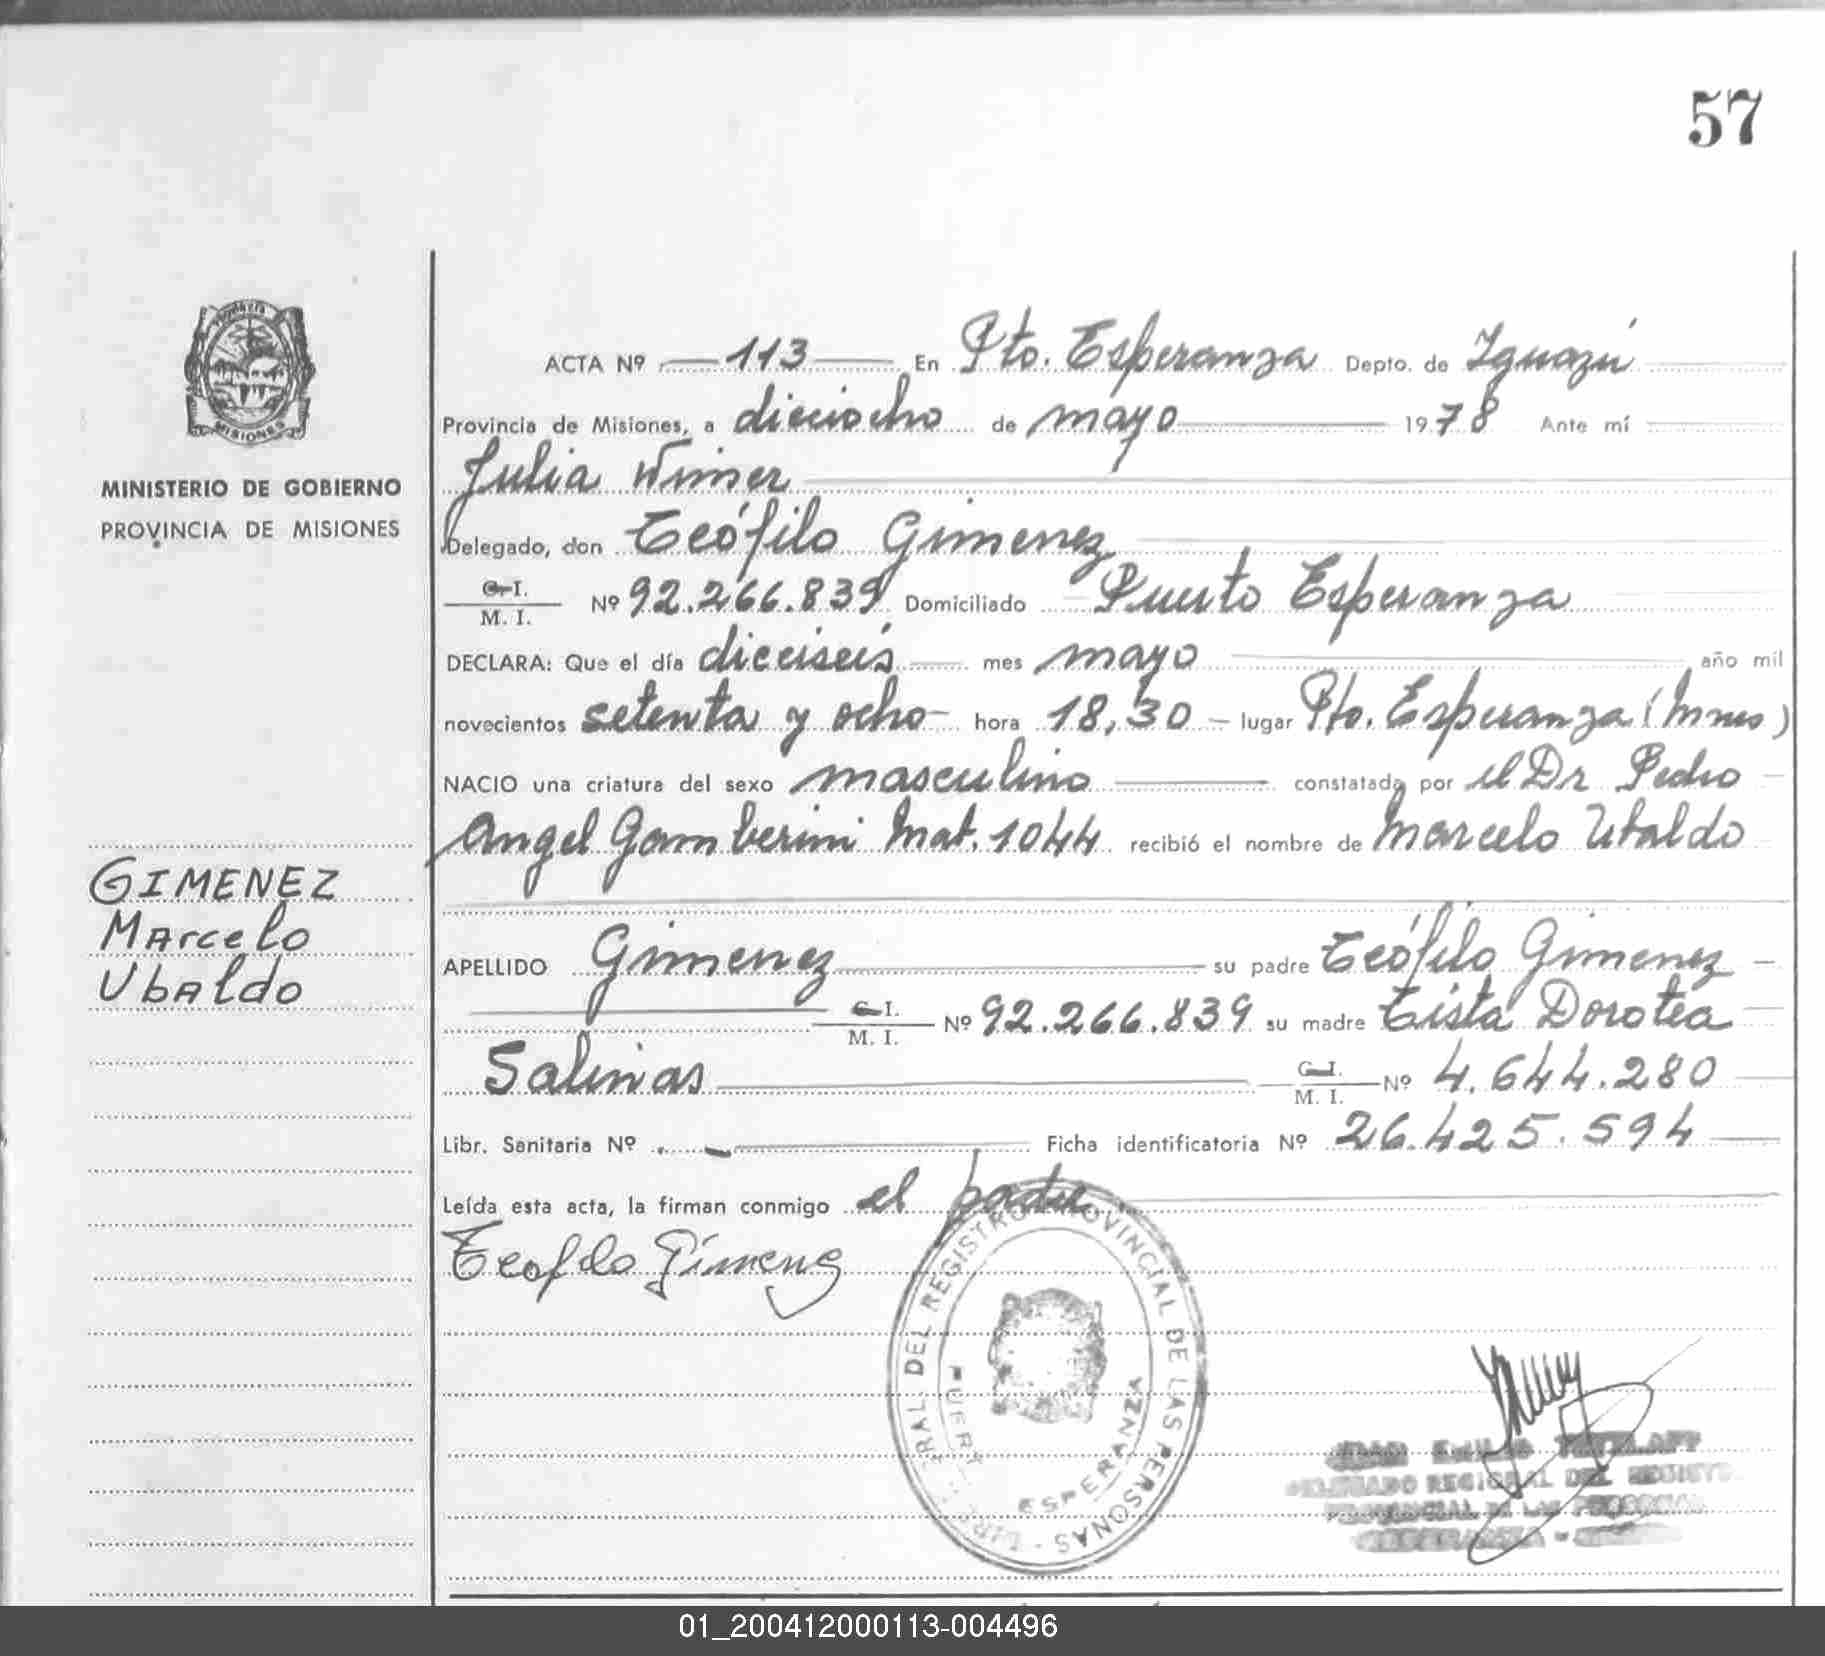 57
MISIONES
MINISTERIO DE GOBIERNO
PROVINCIA DE MISIONES
GIMENEZ
Marcelo
Ubaldo
ACTA Nº 113 En Pto. Esperanza Depto. de Iguazú
Provincia de Misiones, a dieciocho de mayo 1978 Ante mí
Julia Wimer
Delegado, don Teófilo Gimenez
C. I. / M. I. Nº 92.266.839 Domiciliado Puerto Esperanza
DECLARA: Que el día dieciseis mes mayo año mil
novecientos setenta y ocho hora 18,30 lugar Pto. Esperanza (Mnes)
NACIO una criatura del sexo masculino constatada por el Dr Pedro
Angel Gamberini Mat. 1044 recibió el nombre de Marcelo Ubaldo
APELLIDO Gimenez su padre Teófilo Gimenez
C. I. / M. I. Nº 92.266.839 su madre Tista Dorotea
Salinas C. I. / M. I. Nº 4.644.280
Libr. Sanitaria Nº - Ficha identificatoria Nº 26.425.594
Leída esta acta, la firman conmigo el padre
Teofilo Gimenez
DEL REGISTRO PROVINCIAL DE LAS PERSONAS
PUERTO ESPERANZA
DELEGADO REGIONAL DEL REGISTRO
PROVINCIAL DE LAS PERSONAS
01_200412000113-004496